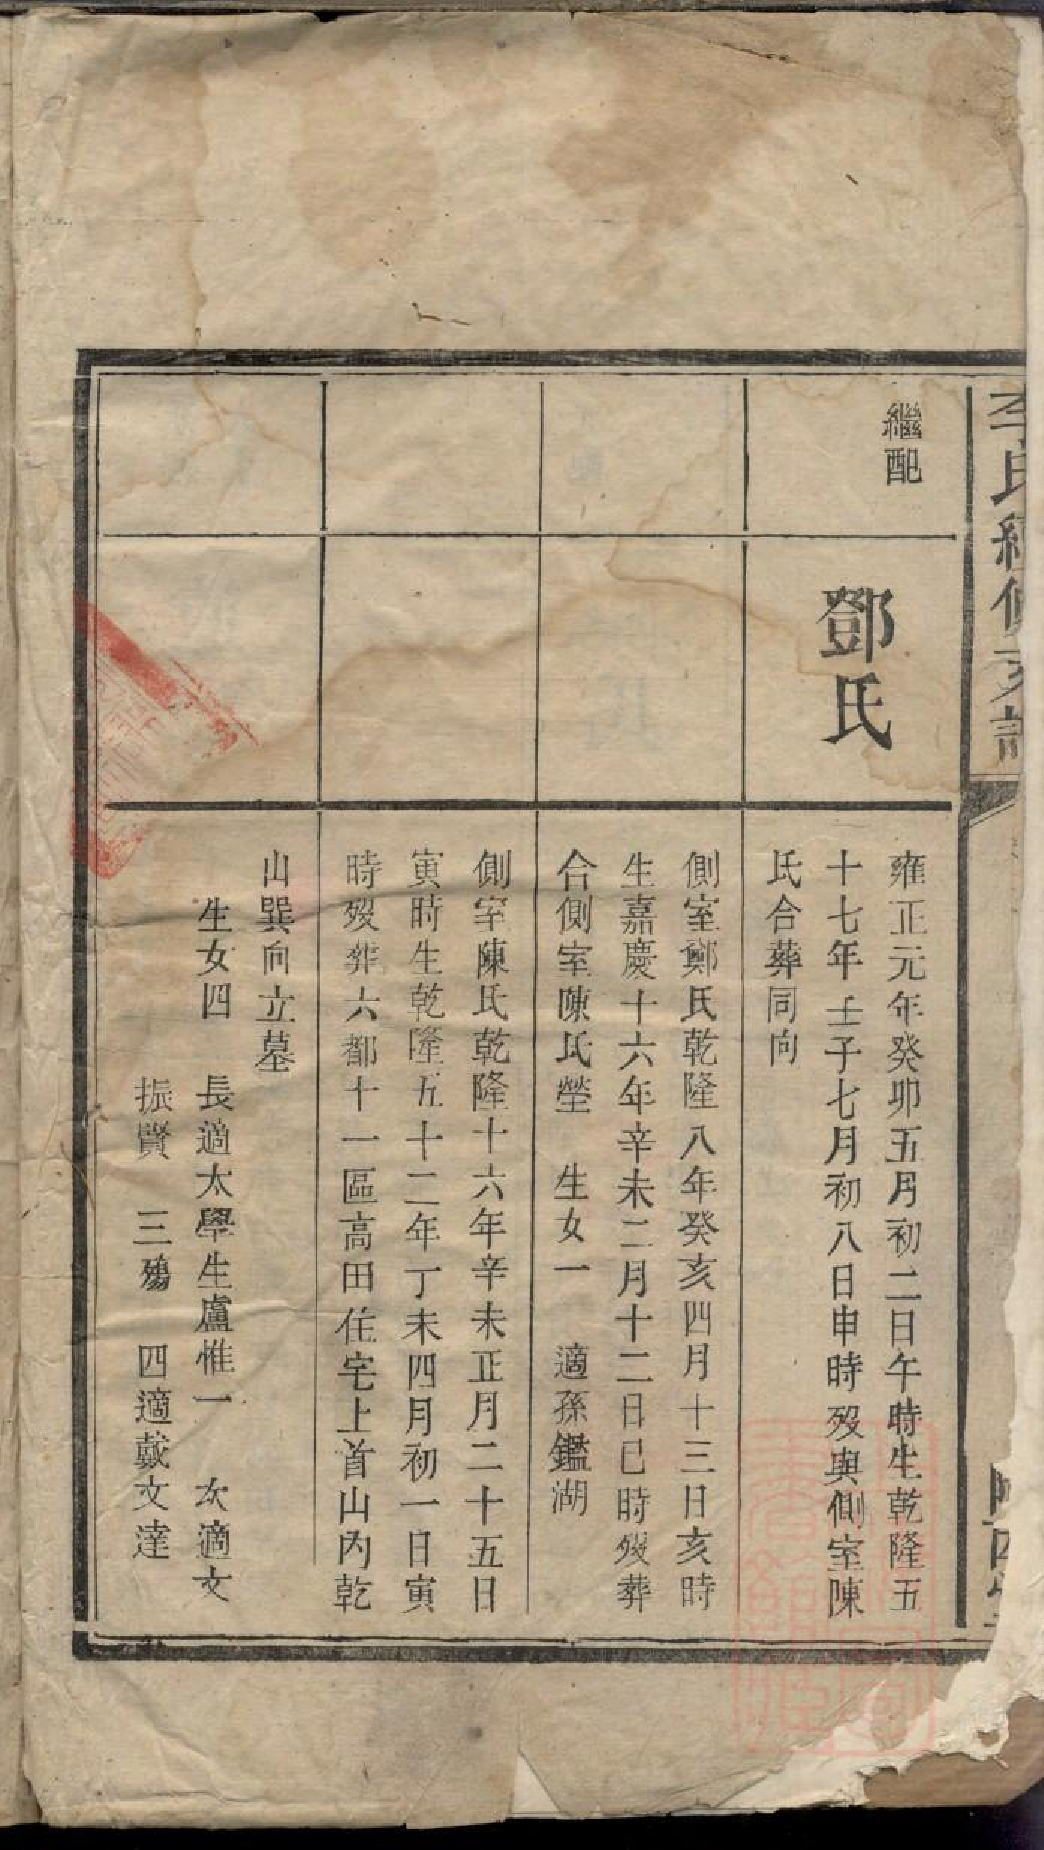 李氏續修支譜
繼配
鄧氏
雍正元年癸卯五月初二日午時生乾隆五
十七年壬子七月初八日申時歿與側室陳
氏合葬同向
側室鄭氏乾隆八年癸亥四月十三日亥時
生嘉慶十六年辛未二月十二日巳時歿葬
合側室陳氏塋 生女一 適孫鑑湖
側室陳氏乾隆十六年辛未正月二十五日
寅時生乾隆五十二年丁未四月初一日寅
時歿葬六都十一區高田住宅上首山內乾
山巽向立墓
生女四 長適太學生盧惟一 次適文
振賢 三殤 四適戴文達